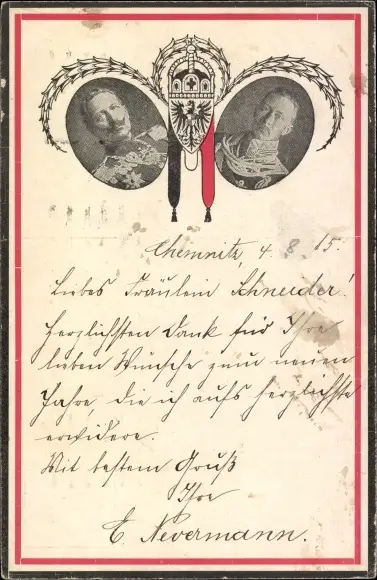 Chemnitz, 4. 8. 15.
Liebes Fräulein Schneider!
Herzlichsten Dank für Ihre
lieben Wünsche zum neuen
Jahre, die ich aufs herzlichste
erwidere.
Mit bestem Gruß
Ihre
E. Nevermann.